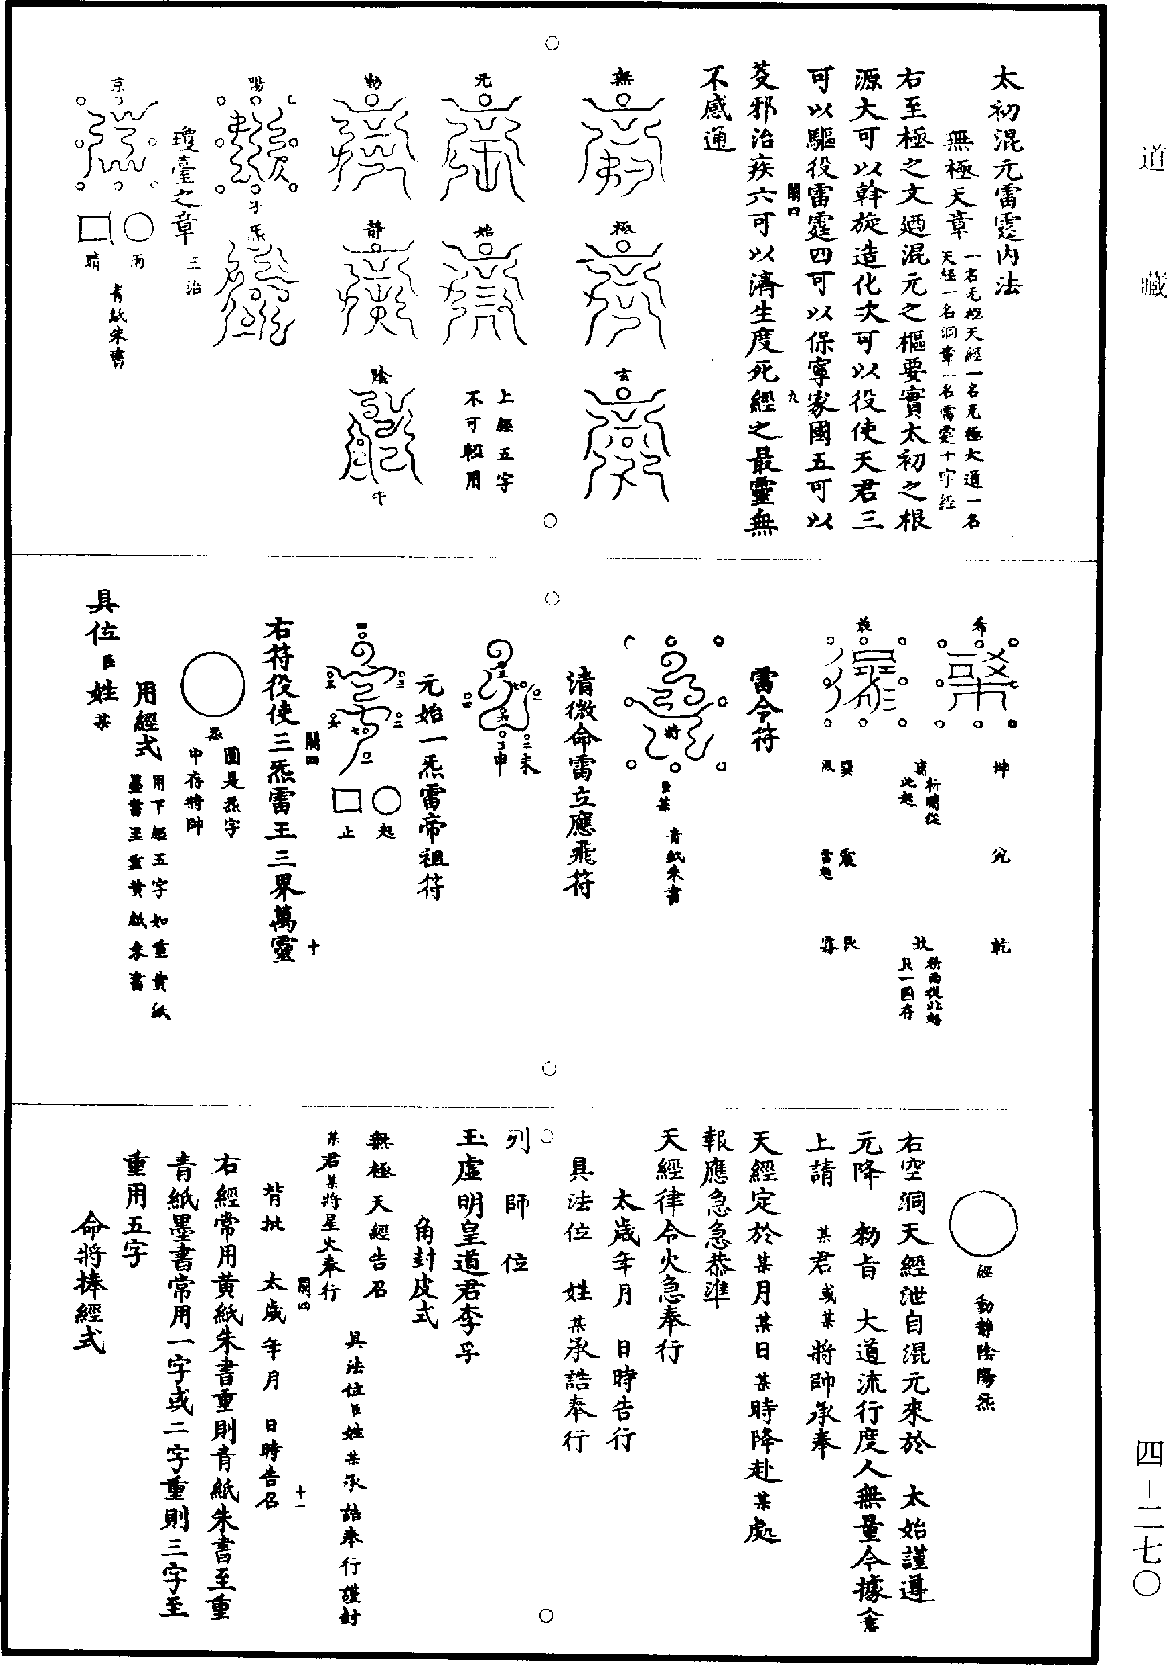 道藏
四－二七〇
太初混元雷霆內法
無極天章
一名无極天經一名无極大道一名
天經一名洞章一名雷霆十字經
右至極之文廼混元之樞要實太初之根
源大可以斡旋造化次可以役使天君三
可以驅役雷霆四可以保寧家國五可以
芟邪治疾六可以濟生度死經之最靈無
不感通
無
極
玄
元
始
上經五字
不可輕用
動
靜
陰
陽
炁
瓊臺之章
三治
雨
晴
青紙朱書
坤
兌
乾
祈晴從
此起
祈雨從此起
只一圈存
巽
風
震
雷起
艮
雷令符
將
青紙朱書
清微命雷立應飛符
未
申
元始一炁雷帝祖符
起
止
右符役使三炁雷王三界萬靈
圓是炁字
中存將帥
炁
用經式
用下經五字如重黃紙
墨書至重黃紙朱書
具位臣姓某
經
動靜陰陽炁
右空洞天經泄自混元來於 太始謹遵
元降 勑旨 大道流行度人無量今據意
上請 某君或某將帥承奉
天經定於某月某日某時降赴某處
報應急急恭準
天經律令火急奉行
太歲年月 日時告行
具法位 姓某承誥奉行
列師位
玉虛明皇道君李孚
角封皮式
無極天經告召
某君某將星火奉行
具法位臣姓某承誥奉行謹封
背批 太歲年月 日時告召
右經常用黃紙朱書重則青紙朱書至重
青紙墨書常用一字或二字重則三字至
重用五字
命將捧經式